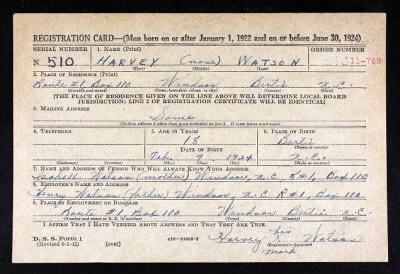 REGISTRATION CARD—(Men born on or after January 1, 1922 and on or before June 30, 1924)
SERIAL NUMBER 1. NAME (Print) ORDER NUMBER
N 510 HARVEY (none) WATSON 11-749
(First) (Middle) (Last)
2. PLACE OF RESIDENCE (Print)
Route #1, Box 110 Windsor Bertie N.C.
(Number and street) (Town, township, village, or city) (County) (State)
[THE PLACE OF RESIDENCE GIVEN ON THE LINE ABOVE WILL DETERMINE LOCAL BOARD
JURISDICTION; LINE 2 OF REGISTRATION CERTIFICATE WILL BE IDENTICAL]
3. MAILING ADDRESS
Same
[Mailing address if other than place indicated on line 2. If same insert word same]
4. TELEPHONE 5. AGE IN YEARS 6. PLACE OF BIRTH
18 Bertie
DATE OF BIRTH (Town or county)
Feb. 9 1924 N.C.
(Exchange) (Number) (Mo.) (Day) (Yr.) (State or country)
7. NAME AND ADDRESS OF PERSON WHO WILL ALWAYS KNOW YOUR ADDRESS
Watson (mother) Windsor, N.C. R#1, Box 110
8. EMPLOYER'S NAME AND ADDRESS
Henry Watson (father) Windsor, N.C. R#1, Box 110
9. PLACE OF EMPLOYMENT OR BUSINESS
Route #1, Box 110 Windsor Bertie N.C.
(Number and street or R. F. D. number) (Town) (County) (State)
I AFFIRM THAT I HAVE VERIFIED ABOVE ANSWERS AND THAT THEY ARE TRUE.
D. S. S. Form 1 his
(over) Harvey Watson
(Registrant's signature)
mark